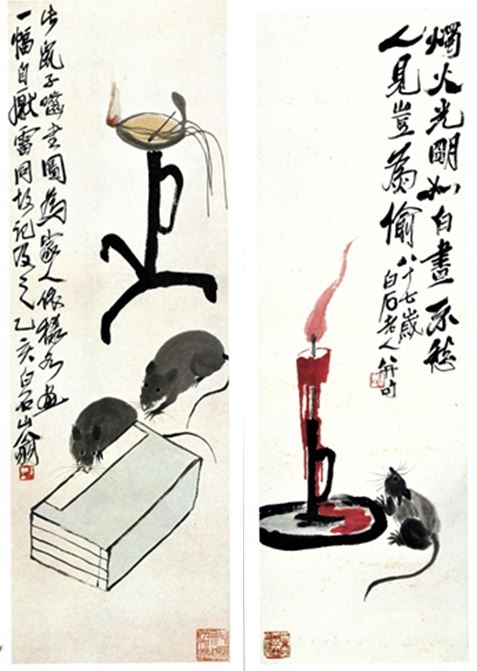 此鼠子嚙書圖為家人依樣各畫
一幅自厭雷同故記及之乙亥白石山翁
燭火光明如白晝不愁
人見豈為偷八十七歲
白石老人并句